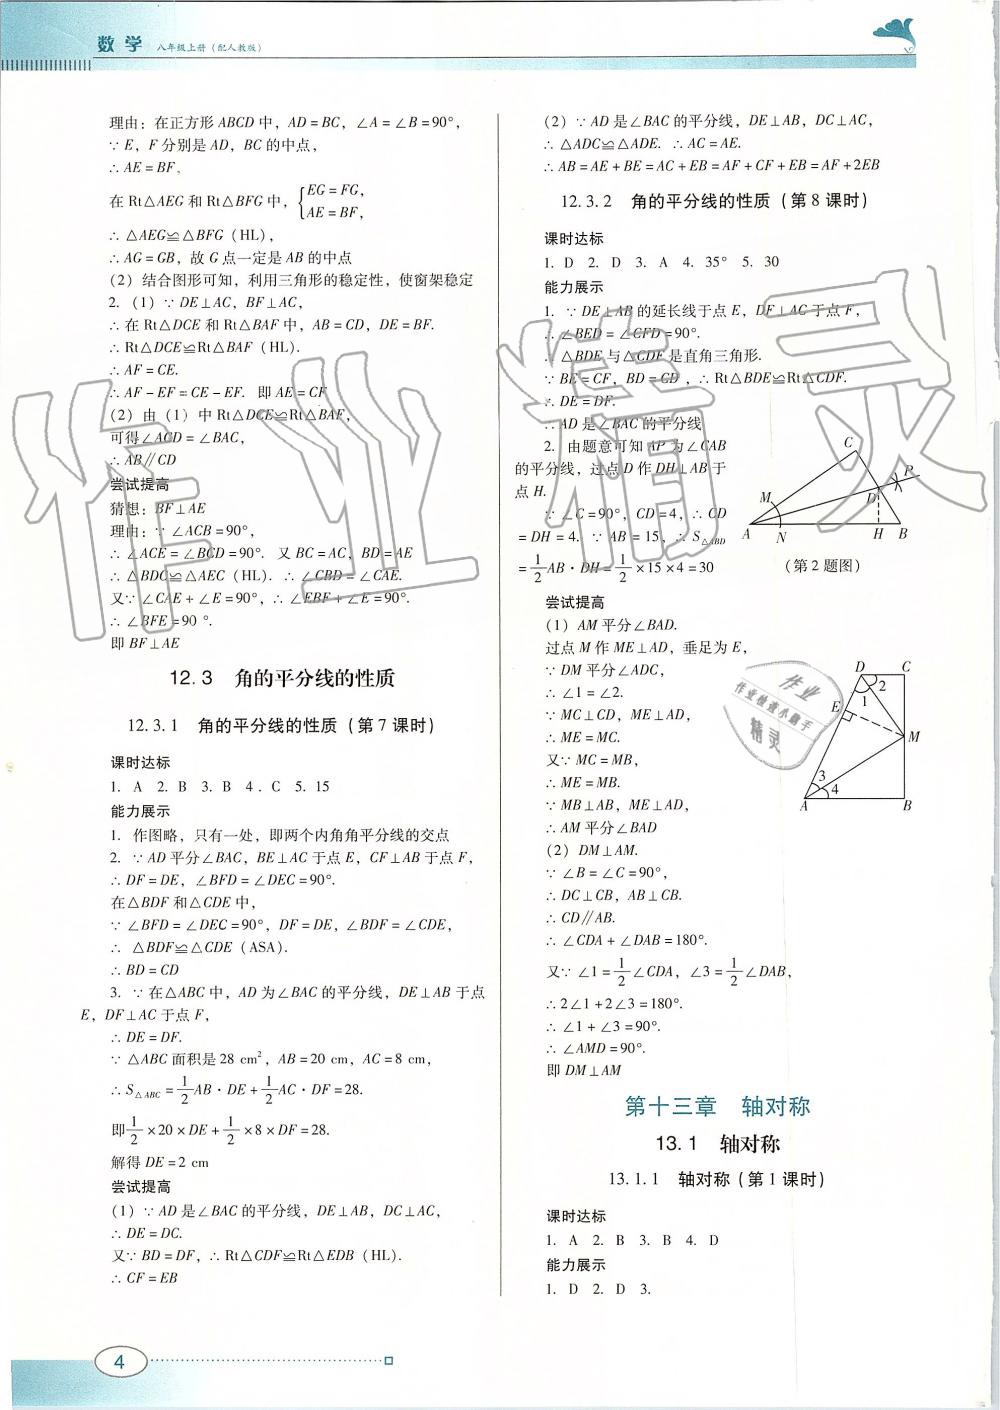 数学 八年级上册（配人教版）
理由：在正方形 ABCD 中，AD＝BC，∠A＝∠B＝90°，
∵ E，F 分别是 AD，BC 的中点，
∴ AE＝BF，
在 Rt△AEG 和 Rt△BFG 中，{EG＝FG，
AE＝BF，
∴ △AEG≌△BFG（HL），
∴ AG＝GB，故 G 点一定是 AB 的中点
（2）结合图形可知，利用三角形的稳定性，使窗架稳定
2.（1）∵ DE⊥AC，BF⊥AC，
∴ 在 Rt△DCE 和 Rt△BAF 中，AB＝CD，DE＝BF.
∴ Rt△DCE≌Rt△BAF（HL）.
∴ AF＝CE.
∴ AF－EF＝CE－EF. 即 AE＝CF
（2）由（1）中 Rt△DCE≌Rt△BAF，
可得∠ACD＝∠BAC，
∴ AB∥CD
尝试提高
猜想：BF⊥AE
理由：∵ ∠ACB＝90°，
∴ ∠ACE＝∠BCD＝90°. 又 BC＝AC，BD＝AE
∴ △BDC≌△AEC（HL）. ∴ ∠CBD＝∠CAE.
又∵ ∠CAE＋∠E＝90°，∴ ∠EBF＋∠E＝90°.
∴ ∠BFE＝90 °.
即 BF⊥AE
12.3 角的平分线的性质
12.3.1 角的平分线的性质（第 7 课时）
课时达标
1. A 2. B 3. B 4 . C 5. 15
能力展示
1. 作图略，只有一处，即两个内角角平分线的交点
2. ∵ AD 平分∠BAC，BE⊥AC 于点 E，CF⊥AB 于点 F，
∴ DF＝DE，∠BFD＝∠DEC＝90°.
在△BDF 和△CDE 中，
∵ ∠BFD＝∠DEC＝90°，DF＝DE，∠BDF＝∠CDE，
∴ △BDF≌△CDE（ASA）.
∴ BD＝CD
3. ∵ 在△ABC 中，AD 为∠BAC 的平分线，DE⊥AB 于点
E，DF⊥AC 于点 F，
∴ DE＝DF.
∵ △ABC 面积是 28 cm²，AB＝20 cm，AC＝8 cm，
∴ S△ABC＝1/2 AB·DE＋1/2 AC·DF＝28.
即 1/2×20×DE＋1/2×8×DF＝28.
解得 DE＝2 cm
尝试提高
（1）∵ AD 是∠BAC 的平分线，DE⊥AB，DC⊥AC，
∴ DE＝DC.
又∵ BD＝DF，∴ Rt△CDF≌Rt△EDB（HL）.
∴ CF＝EB
（2）∵ AD 是∠BAC 的平分线，DE⊥AB，DC⊥AC，
∴ △ADC≌△ADE. ∴ AC＝AE.
∴ AB＝AE＋BE＝AC＋EB＝AF＋CF＋EB＝AF＋2EB
12.3.2 角的平分线的性质（第 8 课时）
课时达标
1. D 2. D 3. A 4. 35° 5. 30
能力展示
1. ∵ DE⊥AB 的延长线于点 E，DF⊥AC 于点 F，
∴ ∠BED＝∠CFD＝90°.
∴ △BDE 与△CDF 是直角三角形.
∵ BE＝CF，BD＝CD，∴ Rt△BDE≌Rt△CDF.
∴ DE＝DF.
∴ AD 是∠BAC 的平分线
2. 由题意可知 AP 为∠CAB
的平分线，过点 D 作 DH⊥AB 于
点 H.
∵ ∠C＝90°，CD＝4，∴ CD
＝DH＝4. ∵ AB＝15，∴ S△ABD
＝1/2 AB·DH＝1/2×15×4＝30
C
P
D
M
A N H B
（第 2 题图）
尝试提高
（1）AM 平分∠BAD.
过点 M 作 ME⊥AD，垂足为 E，
∵ DM 平分∠ADC，
∴ ∠1＝∠2.
∵ MC⊥CD，ME⊥AD，
∴ ME＝MC.
又∵ MC＝MB，
∴ ME＝MB.
∵ MB⊥AB，ME⊥AD，
∴ AM 平分∠BAD
D C
2
1
E
M
3
4
A B
（2）DM⊥AM.
∵ ∠B＝∠C＝90°，
∴ DC⊥CB，AB⊥CB.
∴ CD∥AB.
∴ ∠CDA＋∠DAB＝180°.
又∵ ∠1＝1/2∠CDA，∠3＝1/2∠DAB，
∴ 2∠1＋2∠3＝180°.
∴ ∠1＋∠3＝90°.
∴ ∠AMD＝90°.
即 DM⊥AM
第十三章 轴对称
13.1 轴对称
13.1.1 轴对称（第 1 课时）
课时达标
1. A 2. B 3. B 4. D
能力展示
1. D 2. D 3.
4
作业精灵
作业
作业检查小助手
精灵